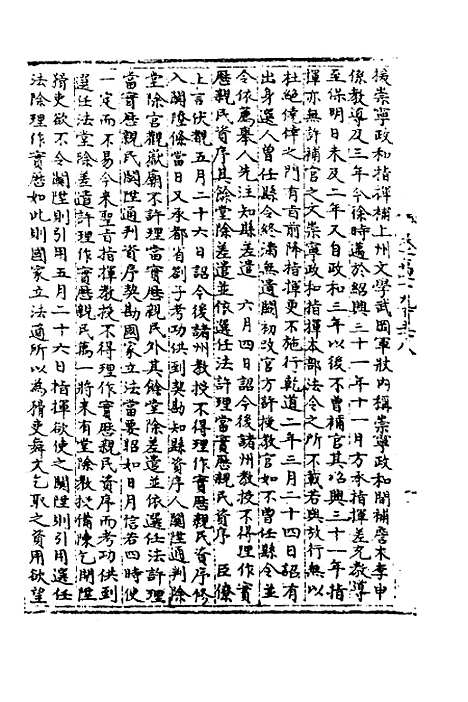 援崇寧政和指揮補上州文學武岡軍狀內稱崇寧政和間補磨本李申
係教導及三年今徐時邁於紹興三十一年十一月方承指揮差充教導
至保明日未及二年又自政和三年以後不曾補官其紹興三十一年指
揮亦無許補官之文崇寧政和指揮本部法令之所不載若與放行無以
杜絕倖倖之門有旨前降指揮更不施行乾道二年三月二十四日詔有
出身選人曾任縣令終滿無遺闕初改官方許授教官如不曾任縣令並
令依薦舉人先注知縣差遣 六月四日詔今後諸州教授不得理作實
歷親民資序其餘堂除差遣並依選任法許理當實歷親民資序 臣僚
上言伏覩五月二十六日詔今後諸州教授不得理作實歷親民資序修
入關陞條當日又承都省劄子考功供到契勘知縣資序人關陞通判除
堂除宮觀嶽廟不許理當實歷親民外其餘堂除差遣並依選任法許理
當實歷親民關陞通判資序契勘國家立法當要昭如日月信若四時使
一定而不易今來聖旨指揮教授不得理作實歷親民資序而考功供到
選任法堂除差遣許理作實歷親民萬一將來有堂除教授備陳乞關陞
猾吏欲不令關陞則引用五月二十六日指揮欲使之關陞則引用選任
法除理作實歷如此則國家立法適所以為猾吏舞文乞取之資用欲望